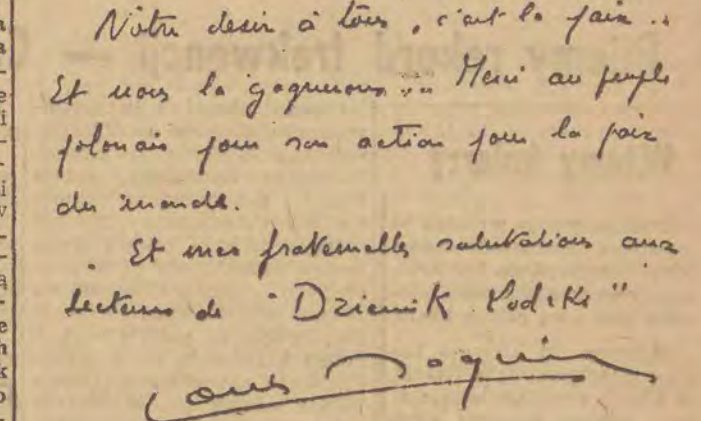 Notre desir à tous, c'est la paix..
Et nous la gagnerons.... Merci au peuple
polonais pour son action pour la paix
du monde.
Et mes fraternelles salutations aux
lecteurs de "Dziennik Łodzki"
Louis Daquin